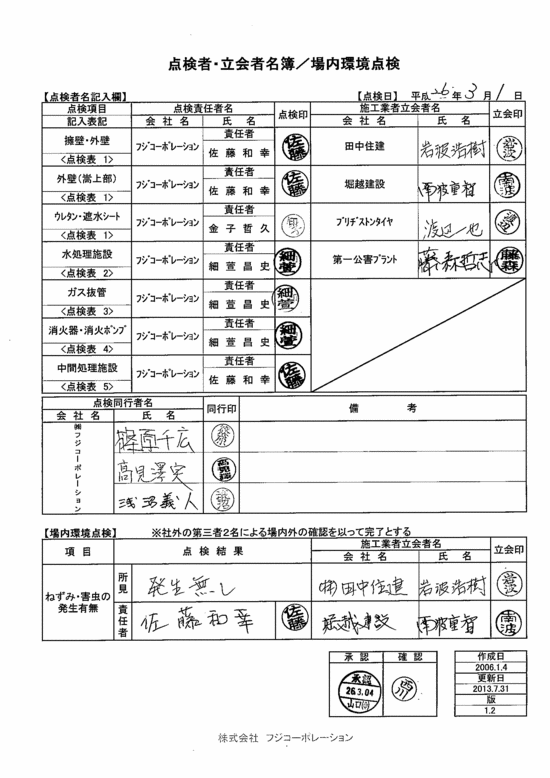 点検者・立会者名簿／場内環境点検
【点検者名記入欄】
【点検日】 平成26年3月1日
点検項目 点検責任者名 点検印 施工業者立会者名 立会印
記入表記 会社名 氏名 会社名 氏名
擁壁・外壁 フジコーポレーション 責任者 佐藤和幸 佐藤 田中住建 岩波浩樹 岩波
<点検表 1>
外壁(嵩上部) フジコーポレーション 責任者 佐藤和幸 佐藤 堀越建設 南波重智 南波
<点検表 1>
ウレタン・遮水シート フジコーポレーション 責任者 金子哲久 ブリヂストンタイヤ 渡辺一也
<点検表 1>
水処理施設 フジコーポレーション 責任者 細萱昌史 細萱 第一公害プラント 藤森哲志 藤森
<点検表 2>
ガス抜管 フジコーポレーション 責任者 細萱昌史 細萱
<点検表 3>
消火器・消火ポンプ フジコーポレーション 責任者 細萱昌史 細萱
<点検表 4>
中間処理施設 フジコーポレーション 責任者 佐藤和幸 佐藤
<点検表 5>
点検同行者名 同行印 備考
会社名 氏名
㈱フジコーポレーション
篠原千広
高見澤実 高見澤
浅沼義人
【場内環境点検】 ※社外の第三者2名による場内外の確認を以って完了とする
項目 点検結果 施工業者立会者名 立会印
会社名 氏名
ねずみ・害虫の発生有無
所見 発生無し ㈱田中住建 岩波浩樹 岩波
責任者 佐藤和幸 佐藤 堀越建設 南波重智 南波
承認 確認
承認 26.3.04 山口 西川
作成日
2006.1.4
更新日
2013.7.31
版
1.2
株式会社 フジコーポレーション